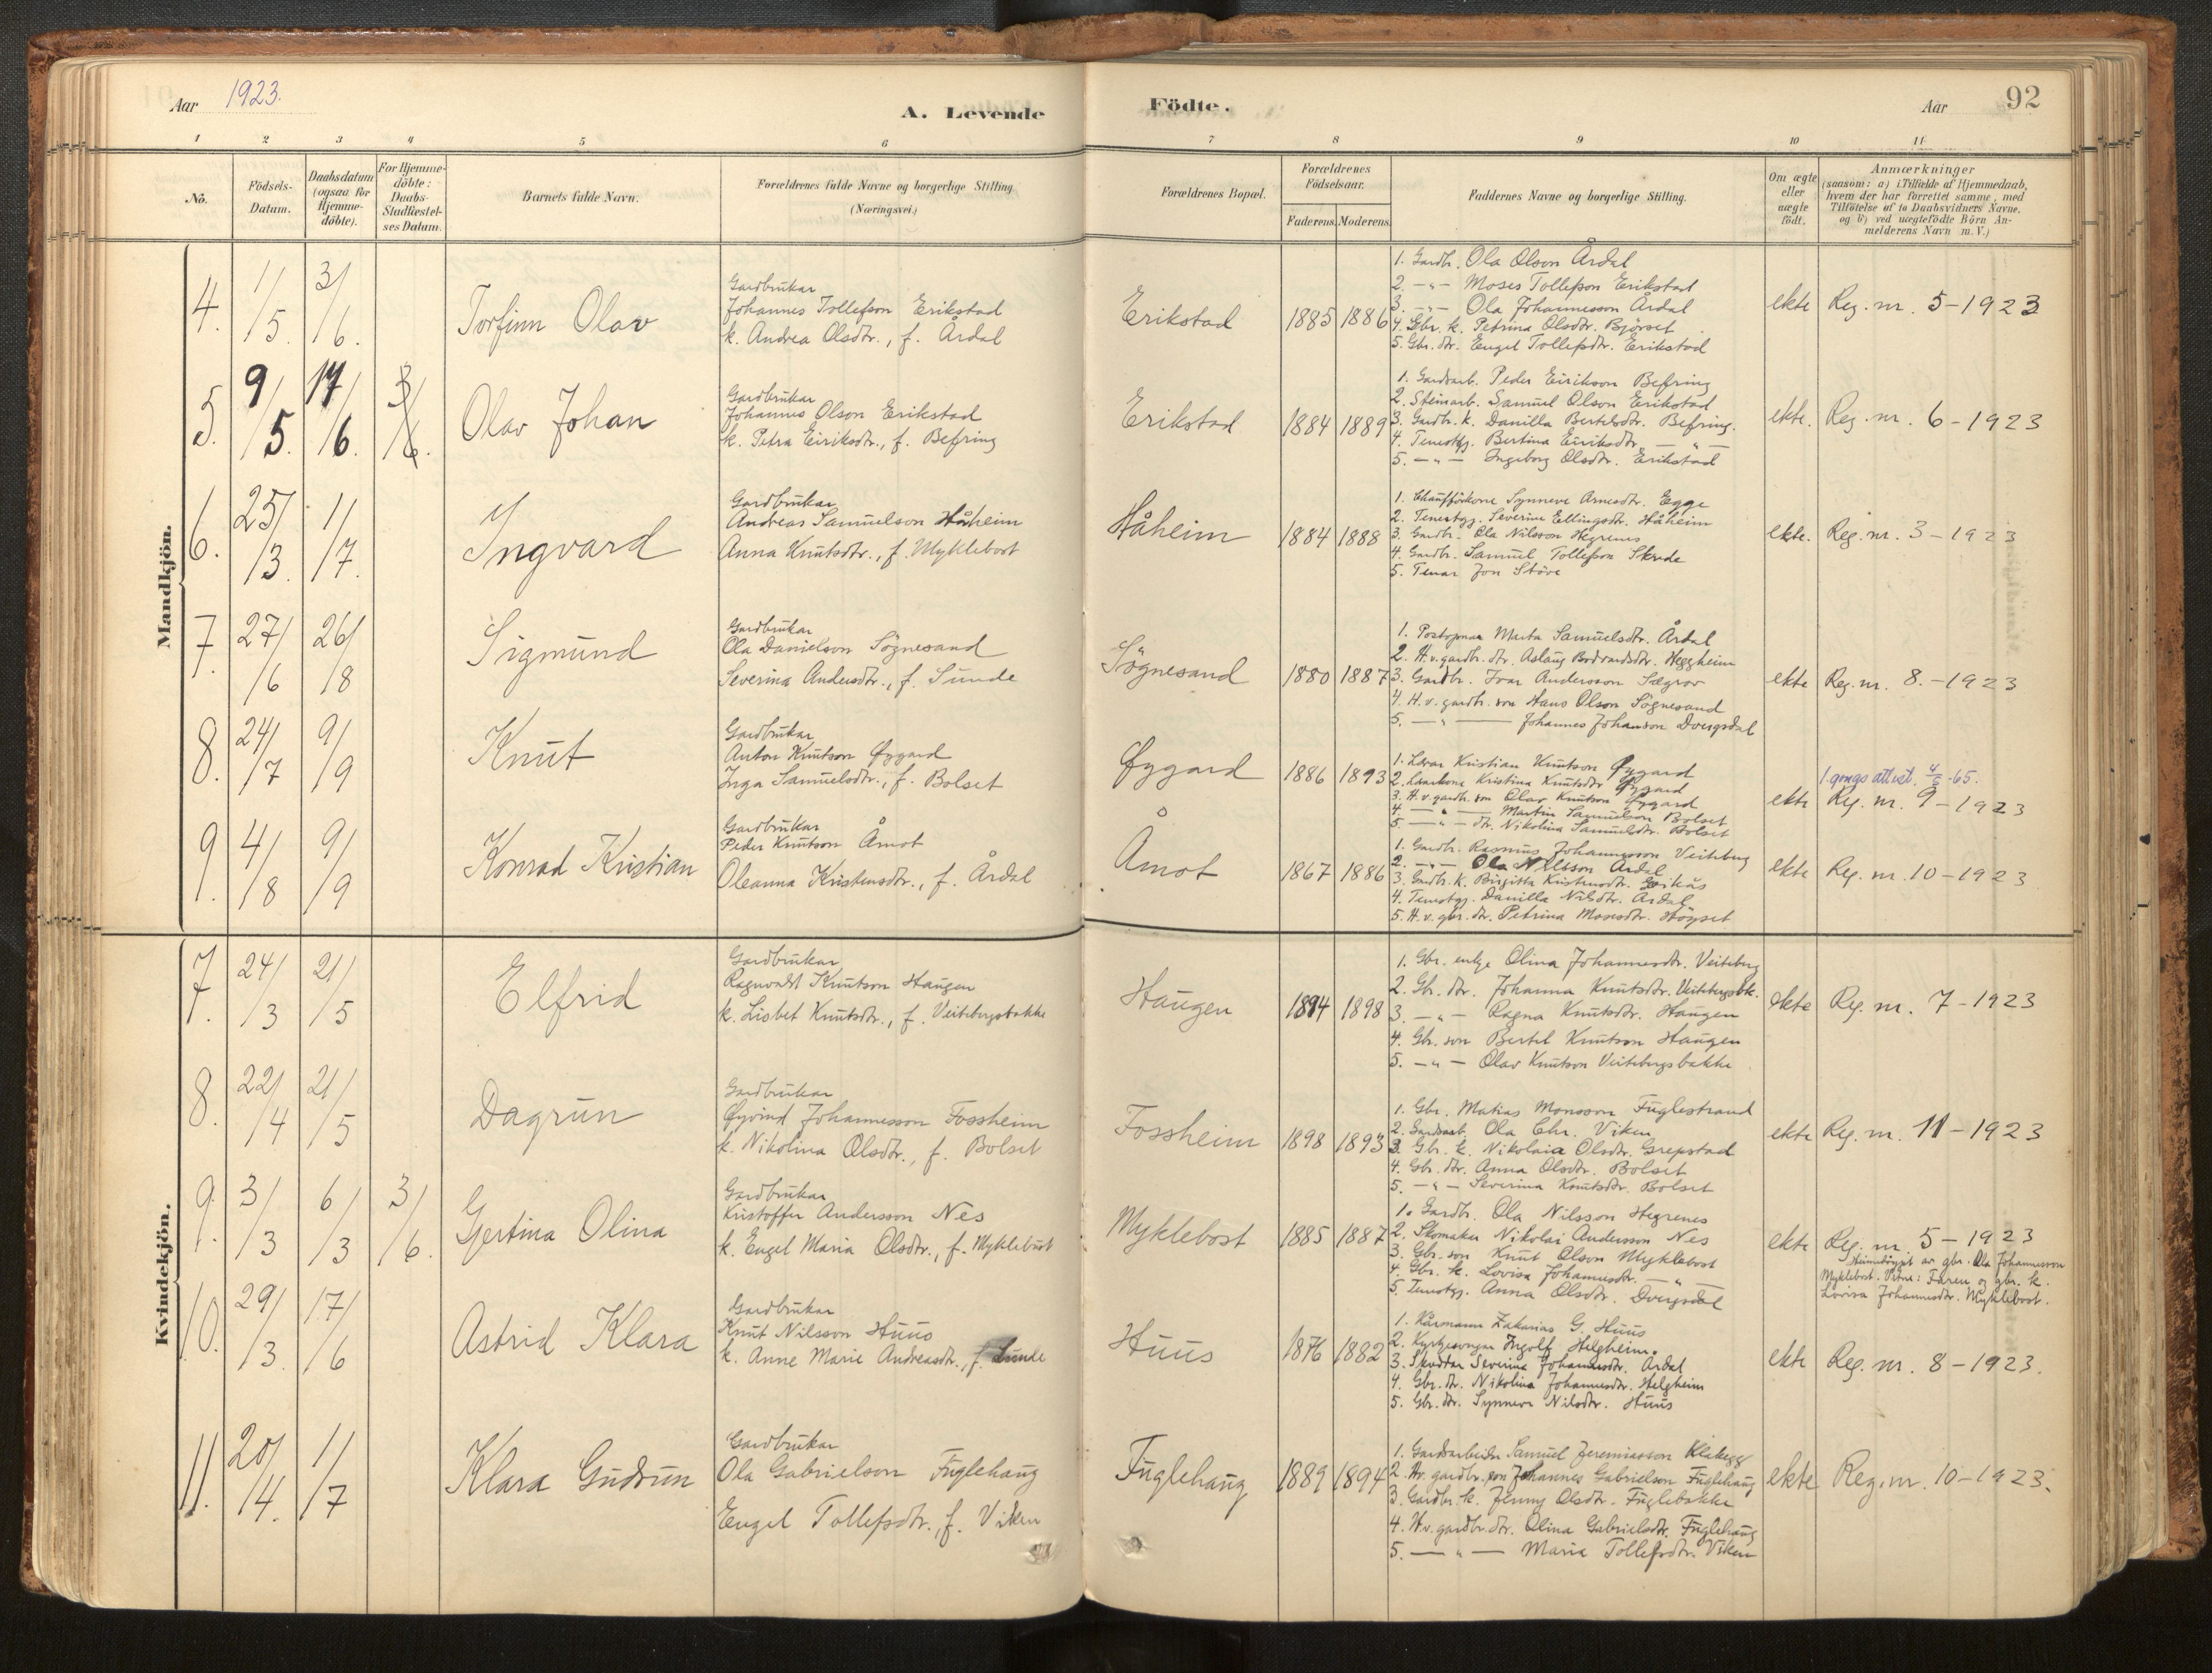 Aar 1923.
A. Levende
Födte.
Aar
92
1 2 3 4 5 6 7 8 9 10 11
No.
Födsels-
Datum.
Daabsdatum
(ogsaa for
Hjemme-
döbte).
For Hjemme-
döbte:
Daabs-
Stadfæstel-
ses Datum.
Barnets fulde Navn.
Forældrenes fulde Navne og borgerlige Stilling
(Næringsvei.)
Forældrenes Bopæl.
Forældrenes
Födselsaar.
Faderens. Moderens.
Faddernes Navne og borgerlige Stilling.
Om ægte
eller
uægte
födt.
Anmærkninger
(saasom: a) i Tilfælde af Hjemmedaab,
hvem der har forrettet samme, med
Tilföielse af to Daabsvidners Navne,
og b) ved uægtefödte Börn An-
melderens Navn m. V.)
Mandkjön.
4. 1/5. 3/6. Torfinn Olav
Gardbrukar
Johannes Tollefson Erikstad
k. Andrea Olsdtr., f. Årdal
Erikstad 1885 1886
1. Gardbr. Ola Olson Årdal
2. -"- Moses Tollefson Erikstad
3. -"- Ola Johannesson Årdal
4. Gbr. k. Petrina Olsdtr. Björset
5. Gbr. dtr. Engel Tollefsdtr. Erikstad
ekte Reg. nr. 5-1923
5. 9/5. 17/6. 3/6. Olav Johan
Gardbrukar
Johannes Olson Erikstad
k. Petra Eiriksdtr., f. Befring
Erikstad 1884 1889
1. Gardsarb. Peder Eirikson Befring
2. Steinarb. Samuel Olson Erikstad
3. Gardbr. k. Danilla Bertilsdtr. Befring.
4. Tenestgj. Bertina Eiriksdtr. - " -
5. -"- Ingeborg Olsdtr. Erikstad
ekte. Reg. nr. 6-1923
6. 25/3. 1/7. Ingvard
Gardbrukar
Andreas Samuelson Håheim
Anna Knutsdtr., f. Myklebost
Håheim 1884 1888
1. Chaufförkone Synneve Arnesdtr. Egge
2. Tenestgj. Severine Ellingsdtr. Håheim
3. Gardbr. Ola Nilsson Hegrenes
4. Gardbr. Samuel Tollefson Skrede
5. Tenar Jon Störe
ekte. Reg. nr. 3-1923
7. 27/6 26/8 Sigmund
Gardbrukar
Ola Danielson Sögnesand
Severina Andersdtr., f. Sunde
Sögnesand 1880 1887
1. Postopnar Marta Samuelsdtr. Årdal
2. H.v. gardbr. dtr. Aslaug Bodvardsdtr. Heggheim
3. Gardbr. Ivar Andersson Sægrov
4. H.v. gardbr. son Hans Olson Sögnesand
5. - " - Johannes Johanson Dvergsdal
ekte Reg. nr. 8.-1923
8. 24/7 9/9 Knut
Gardbrukar
Anton Knutson Øygard
Inga Samuelsdtr., f. Bolset
Øygard 1886 1893
1. Lærar Kristian Knutson Øygard
2. Lærarkona Kristina Knutsdtr Øygard
3. H.v. gardbr. son Olav Knutson Øygard
4. - " - Martin Samuelson Bolset
5. - " - dtr. Nikolina Samuelsdtr. Bolset
ekte 1.gongs attest. 4/5-65.
Reg. nr. 9-1923
9. 4/8 9/9 Konrad Kristian
Gardbrukar
Peder Knutson Åmot
Oleanna Kristensdtr., f. Årdal
Åmot 1867 1886
1. Gardbr. Rasmus Johannesson Veiteberg
2. -"- Ola Nilsson Årdal
3. Gardbr. k. Birgitta Kristensdtr. Eikås
4. Tenestgj. Danilla Nilsdtr. Årdal
5. H.v. gbr. dtr. Petrina Mosesdtr. Högset
ekte Reg. nr. 10-1923
Kvindekjön.
7. 24/3 21/5 Elfrid
Gardbrukar
Ragnvald Knutson Haugen
k. Lisbet Knutsdtr., f. Veitebergsbakke
Haugen 1894 1898
1. Gbr. enkje Olina Johannesdtr. Veiteberg
2. Gbr. dtr. Johanna Knutsdtr. Veitebergsbk.
3. -"- Ragna Knutsdtr. Haugen
4. Gbr. son Bertel Knutson Haugen
5. -"- Olav Knutson Veitebergsbakke
ekte Reg. nr. 7-1923
8. 22/4 21/5 Dagrun
Gardbrukar
Øyvind Johannesson Fossheim
k. Nikolina Olsdtr., f. Bolset
Fossheim 1898 1893
1. Gbr. Matias Monsson Fuglestrand
2. Gardsarb. Ola Chr. Viken
3. Gbr. k. Nikolaia Olsdtr. Grepstad
4. Gbr. dtr. Anna Olsdtr. Bolset
5. -"- Severina Knutsdtr. Bolset
ekte Reg. nr. 11-1923
9. 3/3 6/3 3/6. Gjertina Olina
Gardbrukar
Kristoffer Andersson Nes
k. Engel Maria Olsdtr., f. Myklebust
Myklebost 1885 1887
1. Gardbr. Ola Nilsson Hegrenes
2. Skomaker Nikolai Andersson Nes
3. Gbr. son Knut Olson Myklebost
4. Gbr. k. Lovisa Johannesdtr. - " -
5. Tenestgj. Anna Olsdtr. Dvergsdal
ekte Reg. nr. 5-1923
Heimedöypt av gbr. Ola Johannesson
Myklebost. Vitne: Faren og gbr. k.
Lovisa Johannesdtr. Myklebost.
10. 29/3. 17/6 Astrid Klara
Gardbrukar
Knut Nilsson Huus
k. Anne Marie Andreasdtr., f. Sunde
Huus 1876 1882
1. Kårmann Zakarias G. Huus
2. Kyrkjesongar Ingolf Helgheim.
3. Skreddar Severina Johannesdtr. Årdal
4. Gbr. dtr. Nikolina Johannesdtr. Helgheim
5. Gbr. dtr. Synneve Nilsdtr. Huus
ekte Reg. nr. 8-1923.
11. 20/4. 1/7 Klara Gudrun
Gardbrukar
Ola Gabrielson Fuglehaug
Engel Tollefsdtr., f. Viken
Fuglehaug 1889 1894
1. Gardsarbeider Samuel Jeremiasson Klakegg
2. Hv. gardbr. son Johannes Gabrielson Fuglehaug
3. Gardbr. k. Jenny Olsdtr. Fuglebakke
4. H.v. gardbr. dtr. Olina Gabrielsdtr. Fuglehaug
5. - " - Maria Tollefsdtr. Viken
ekte Reg. nr. 10-1923.